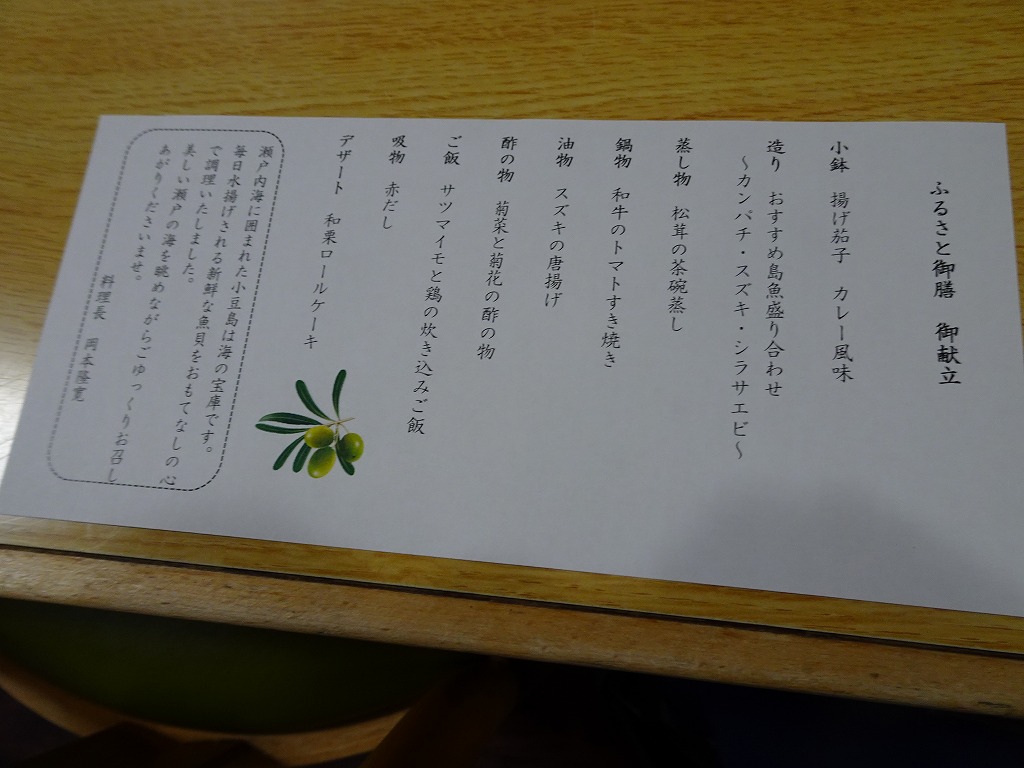 ふるさと御膳　御献立
小鉢　揚げ茄子　カレー風味
造り　おすすめ島魚盛り合わせ
～カンパチ・スズキ・シラサエビ～
蒸し物　松茸の茶碗蒸し
鍋物　和牛のトマトすき焼き
油物　スズキの唐揚げ
酢の物　菊菜と菊花の酢の物
ご飯　サツマイモと鶏の炊き込みご飯
吸物　赤だし
デザート　和栗ロールケーキ
瀬戸内海に囲まれた小豆島は海の宝庫です。
毎日水揚げされる新鮮な魚貝をおもてなしの心
で調理いたしました。
美しい瀬戸の海を眺めながらごゆっくりお召し
あがりくださいませ。
料理長　岡本隆寛